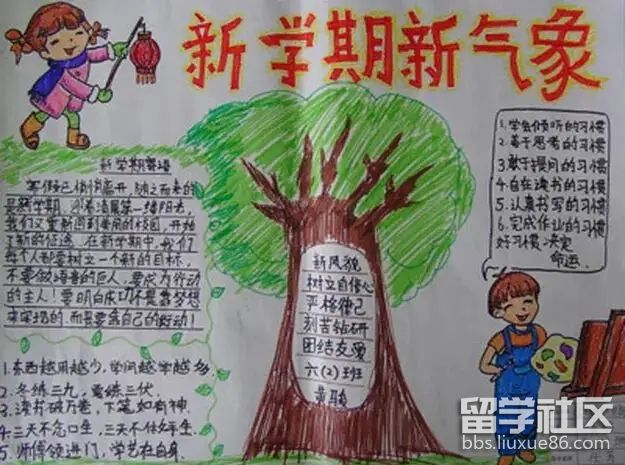 新学期新气象
新学期寄语
寒假已悄悄离开,随之而来的
是新学期,迎着清晨第一缕阳光,
我们又重新回到美丽的校园,开始
了新的征途。在新学期中,我们
每个人都要树立一个新的目标,
不要做语言的巨人,要成为行动
的主人!要明白成功不是靠梦想
来实现的,而是要靠自己的行动!
1.东西越用越少,学问越学越多.
2.冬练三九,夏练三伏.
3.读书破万卷,下笔如有神.
4.三天不念口生,三天不做手生.
5.师傅领进门,学艺在自身.
新风貌
树立自信心
严格律己
刻苦钻研
团结友爱
六(2)班
1.学会倾听的习惯
2.善于思考的习惯
3.敢于提问的习惯
4.自在读书的习惯
5.认真书写的习惯
6.完成作业的习惯
好习惯,决定
命运.
留学社区
bbs.liuxue86.com